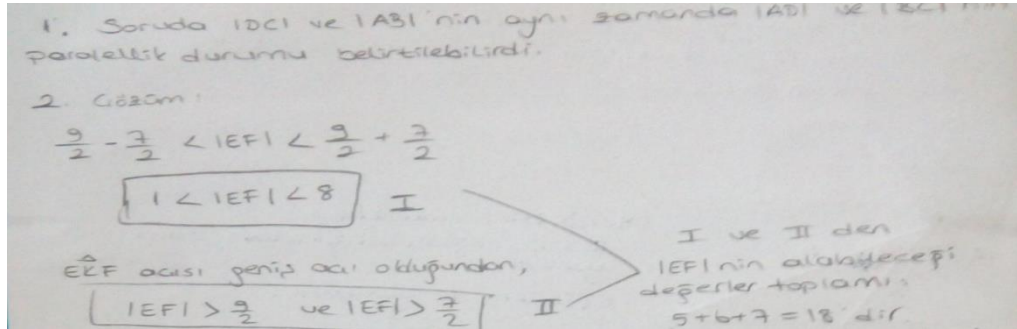 1. Soruda |DC| ve |AB| nin aynı zamanda |AD| ve |BC| nin
paralellik durumu belirtilebilirdi.
2. Çözüm:
9/2 - 7/2 < |EF| < 9/2 + 7/2
1 < |EF| < 8 I
EKF açısı geniş açı olduğundan,
|EF| > 9/2 ve |EF| > 7/2 II
I ve II den
|EF| nin alabileceği
değerler toplamı:
5+6+7=18 dir